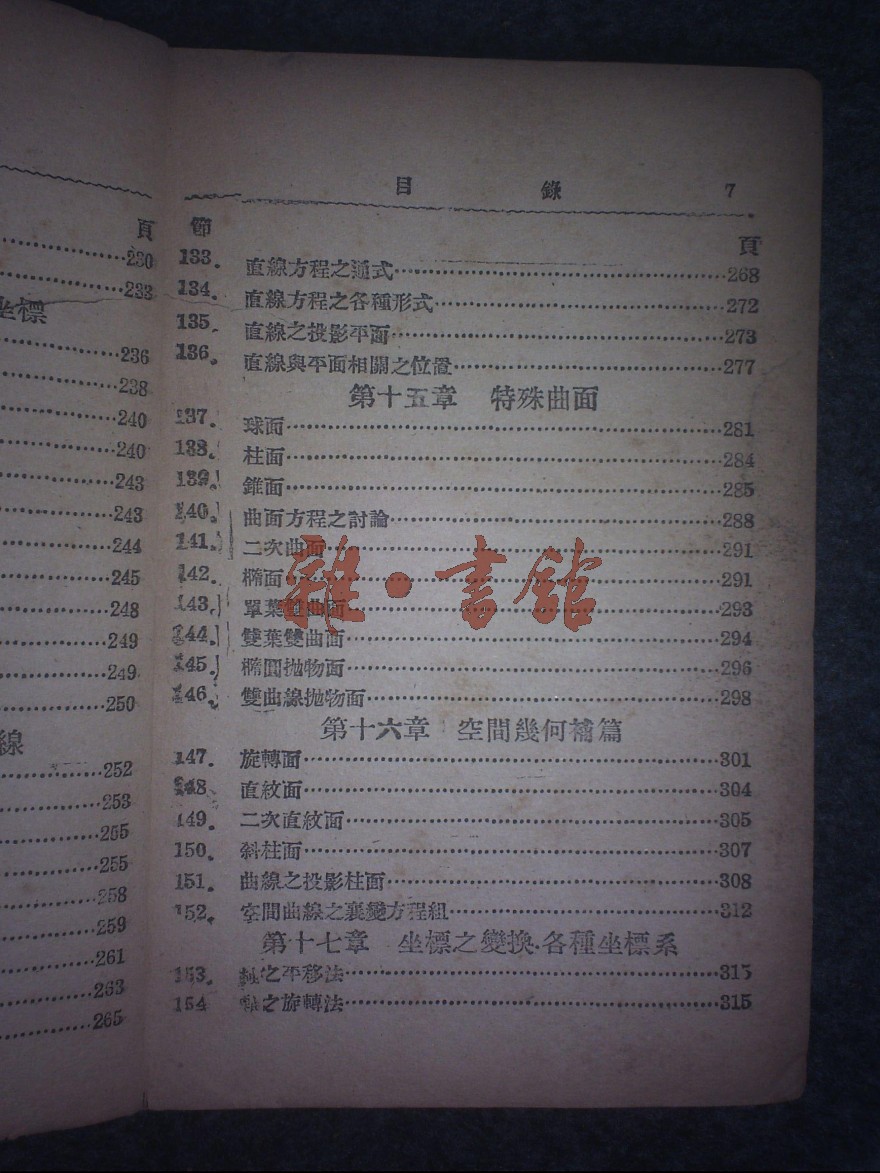 頁
230
233
坐標
236
238
240
240
243
243
244
245
248
249
249
250
線
252
253
255
255
258
259
261
263
265
目 錄 7
節 頁
133. 直線方程之通式 268
134. 直線方程之各種形式 272
135. 直線之投影平面 273
136. 直線與平面相關之位置 277
第十五章 特殊曲面
137. 球面 281
138. 柱面 284
139. 錐面 285
140. 曲面方程之討論 288
141. 二次曲面 291
142. 橢面 291
143. 單葉雙曲面 293
144. 雙葉雙曲面 294
145. 橢圓拋物面 296
146. 雙曲線拋物面 298
第十六章 空間幾何補篇
147. 旋轉面 301
148. 直紋面 304
149. 二次直紋面 305
150. 斜柱面 307
151. 曲線之投影柱面 308
152. 空間曲線之襄變方程組 312
第十七章 坐標之變換·各種坐標系
153. 軸之平移法 315
154 軸之旋轉法 315
雜·書館